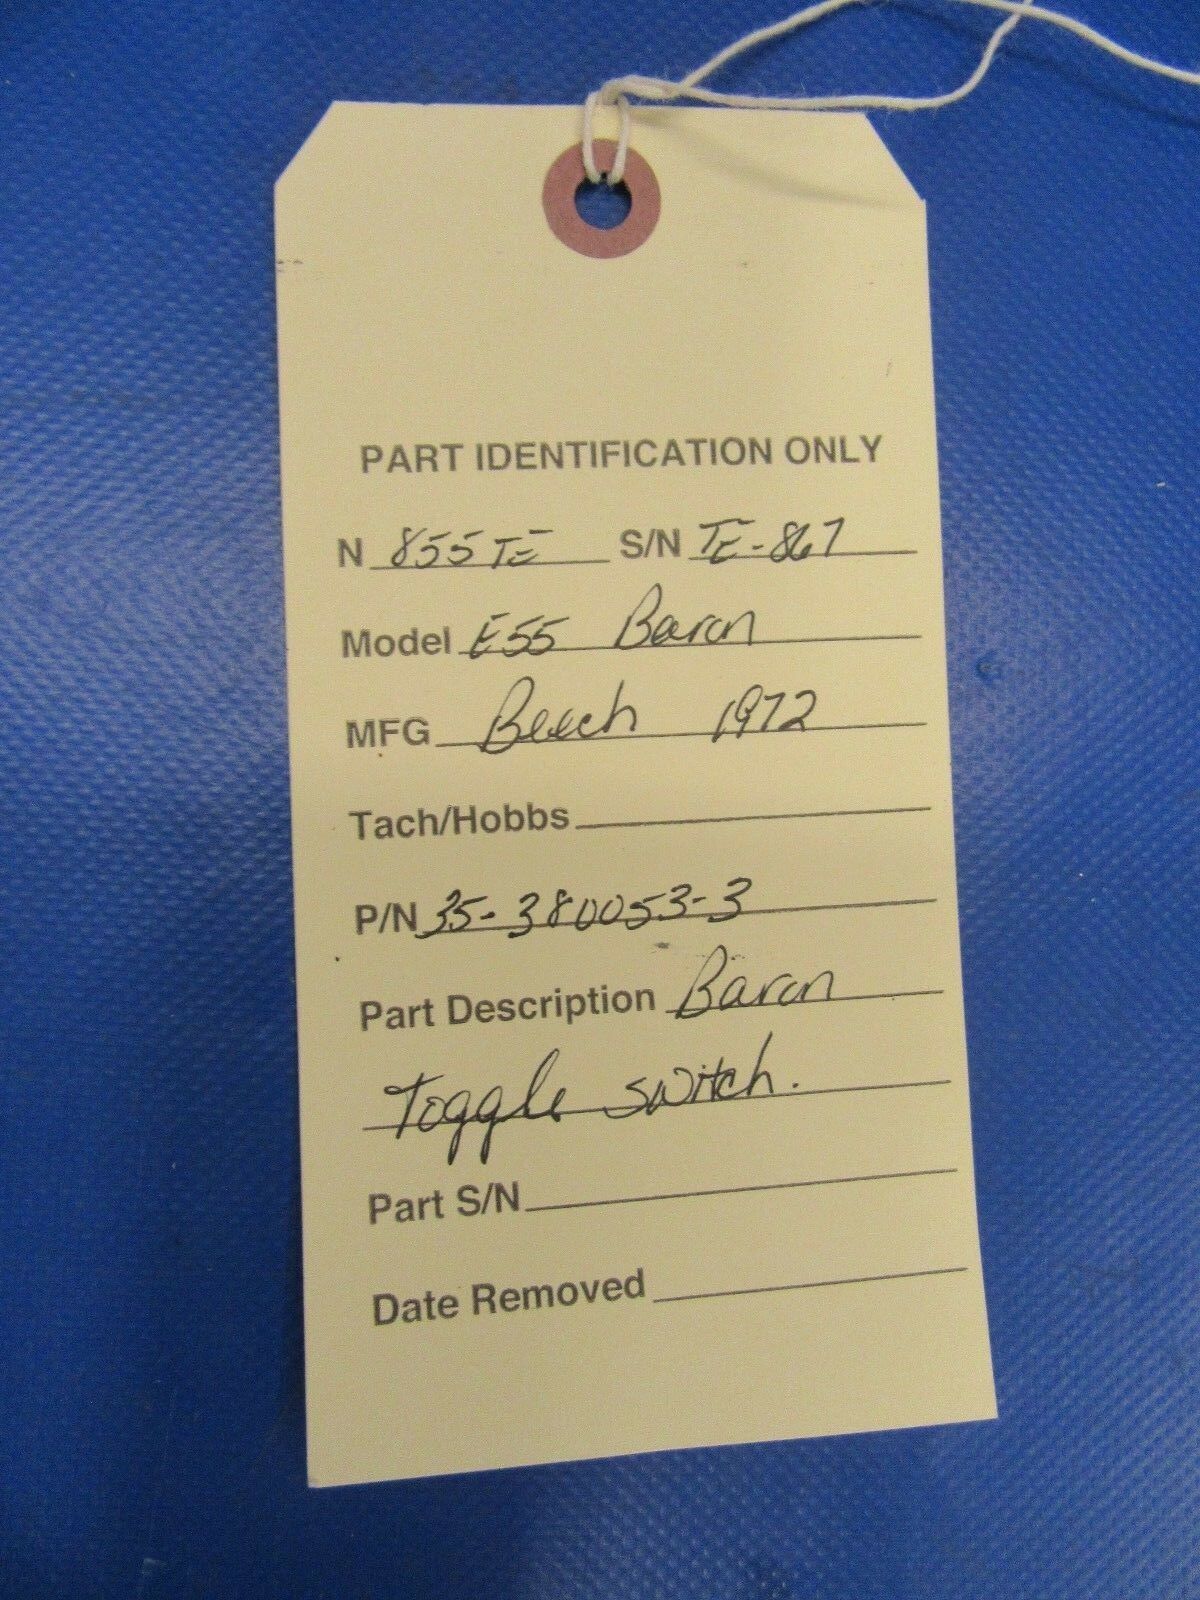 PART IDENTIFICATION ONLY
N 855TE S/N TE-867
Model E55 Baron
MFG Beech 1972
Tach/Hobbs
P/N 35-380053-3
Part Description Baron
Toggle switch.
Part S/N
Date Removed